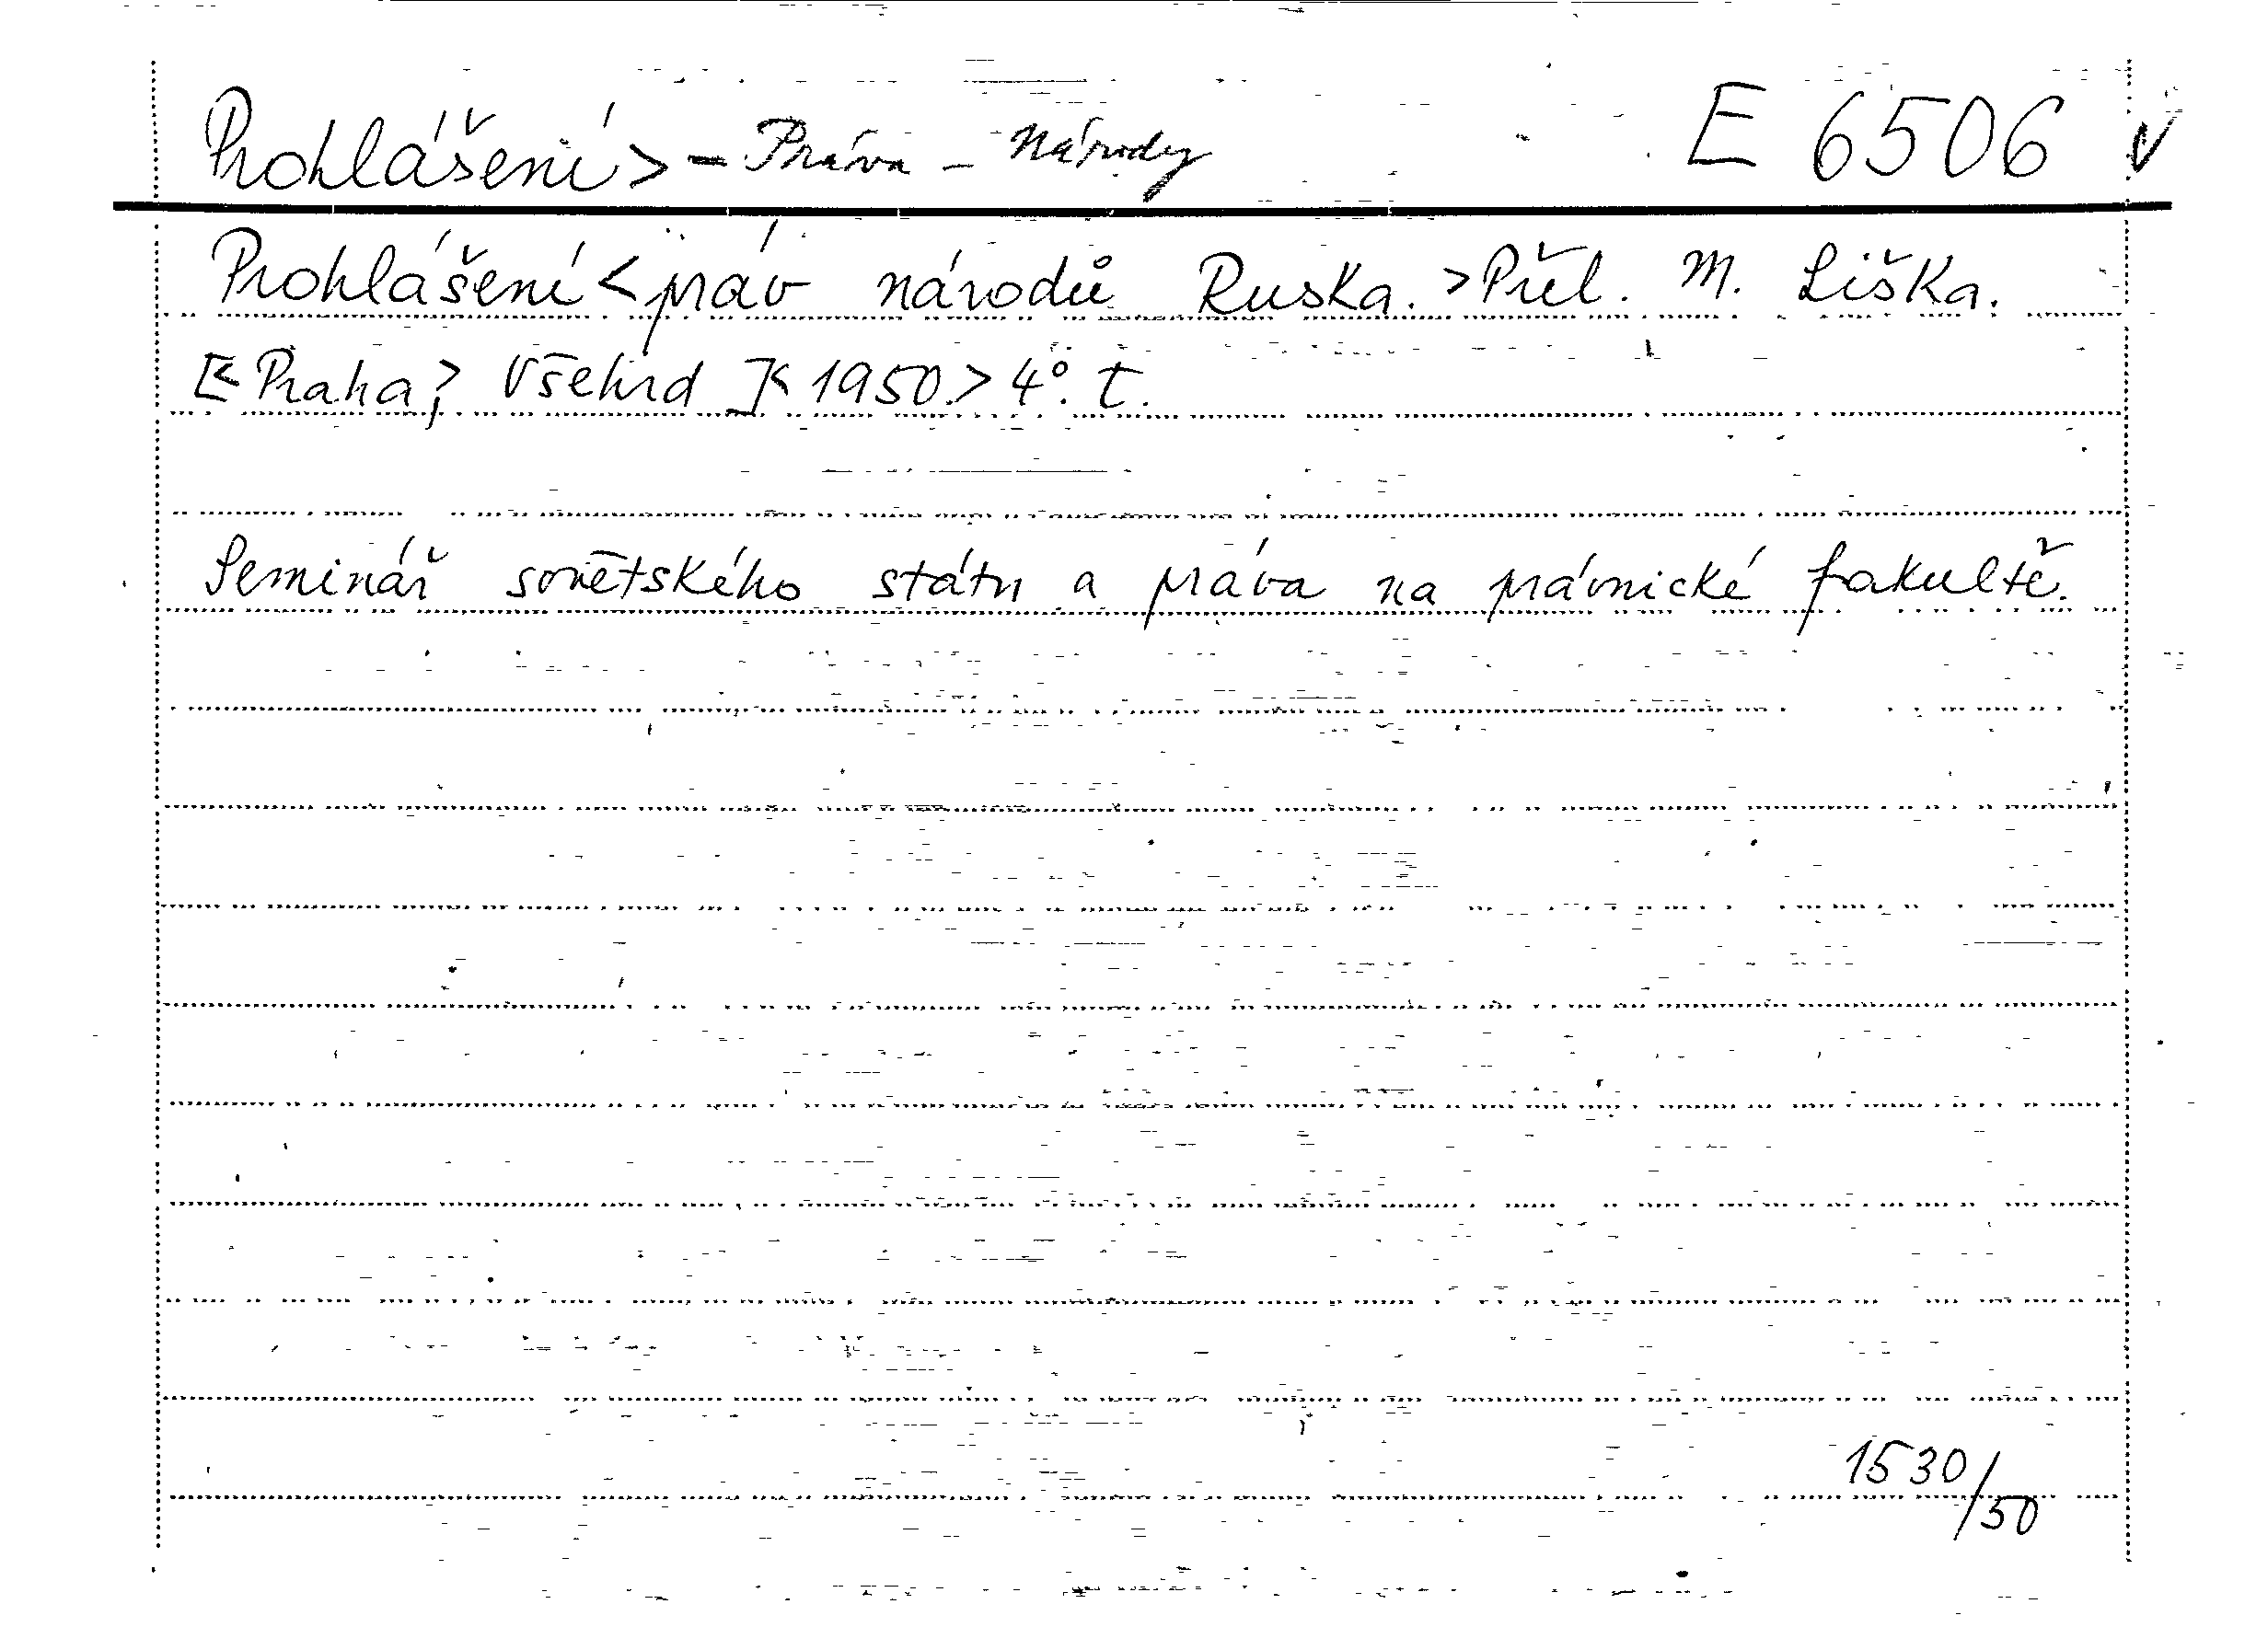 Prohlášení > - Práva - Národy E 6506 v
Prohlášení < práv národů Ruska. > Přel. M. Liška.
[< Praha, > Všehrd ] < 1950. > 4°. t.
Seminář sovětského státu a práva na právnické fakultě.
1530/50